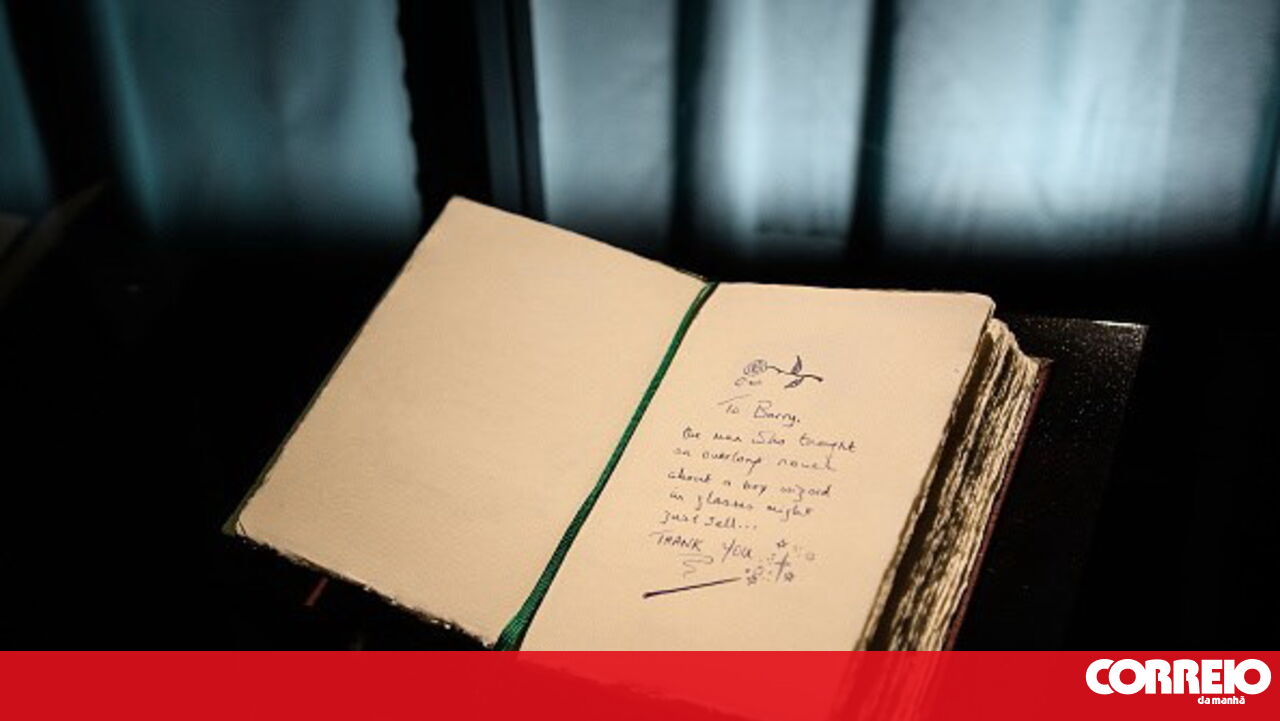 To Barry.
the man who thought
an overlong novel
about a boy wizard
in glasses might
just sell...
THANK YOU
CORREIO
da manhã